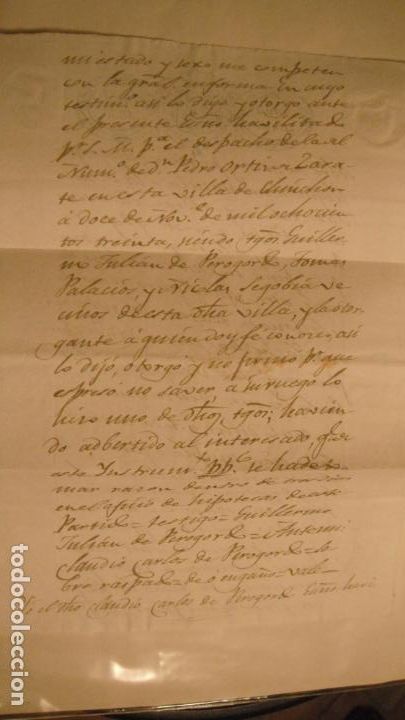 mi estado y sexo me competen
con la gral. en forma en cuyo
testimo. asi lo dijo y otorgo ante
el presente Esno. havilitado
pr. S. M. pa. el despacho de la al
Numo. de dn. Pedro Ortiz a Zara-
te en esta villa de Chinchon
á doce de Nove. de mil ochocien
tos treinta, siendo tgos. Guiller
mo Julián de Perogordo, tomas
Palacios, y Nicolas Segobia ve
cinos de esta dha villa, y la otor
gante á quien doy fe conozco, asi
lo dijó, otorgó y no firmó pr. que
espresó no saver, á su ruego lo
hizo uno de dhos. tgos; havien
do adbertido al interesado, que
este Instrumto. ppco. se ha de to
mar razon dentro de
en el oficio de hipotecas de este
Partido = testigo = Guillermo
Julián de Perogordo = Antemi:
Claudio Carlos de Perogordo = So
bre raspado = de ó engaño = vale =
Yo el dho Claudio Carlos de Perogordo Esno.
todocoleccion
tc